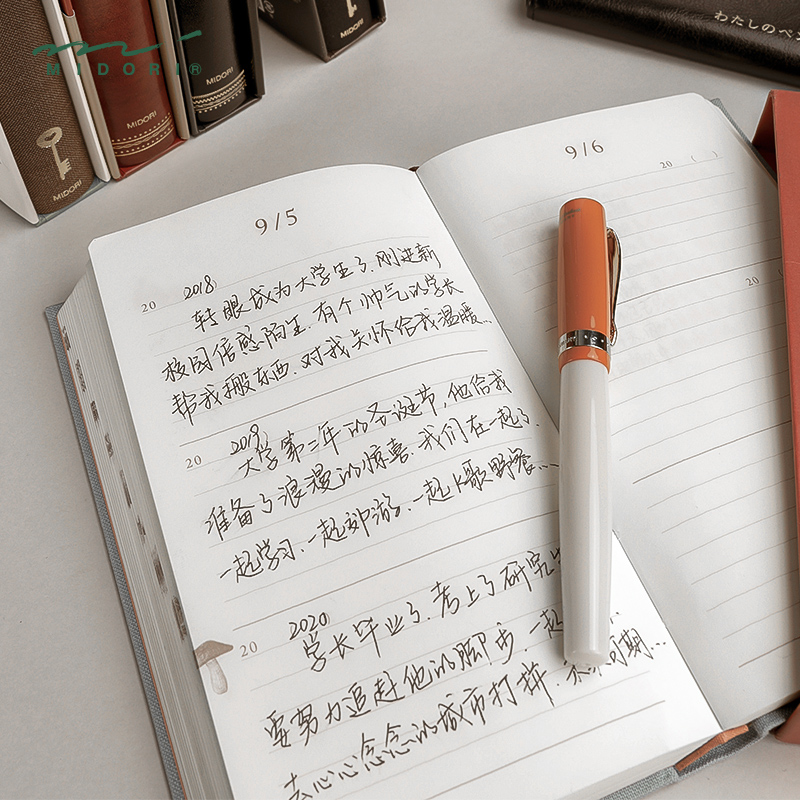 MIDORI®
MIDORI
MIDORI
MIDORI
MIDORI
わたしのペン
9/5
20 2018
转眼成为大学生了.刚进新
校园倍感陌生.有个帅气的学长
帮我搬东西.对我关怀给我温暖...
20 2019
大学第二年的圣诞节,他给我
准备了浪漫的惊喜.我们在一起了.
一起学习.一起郊游.一起K歌野餐...
20 2020
学长毕业了.考上了研究
要努力追赶他的脚步.一起
去心心念念的城市打拼.期...
9/6
20 ( )
20 (